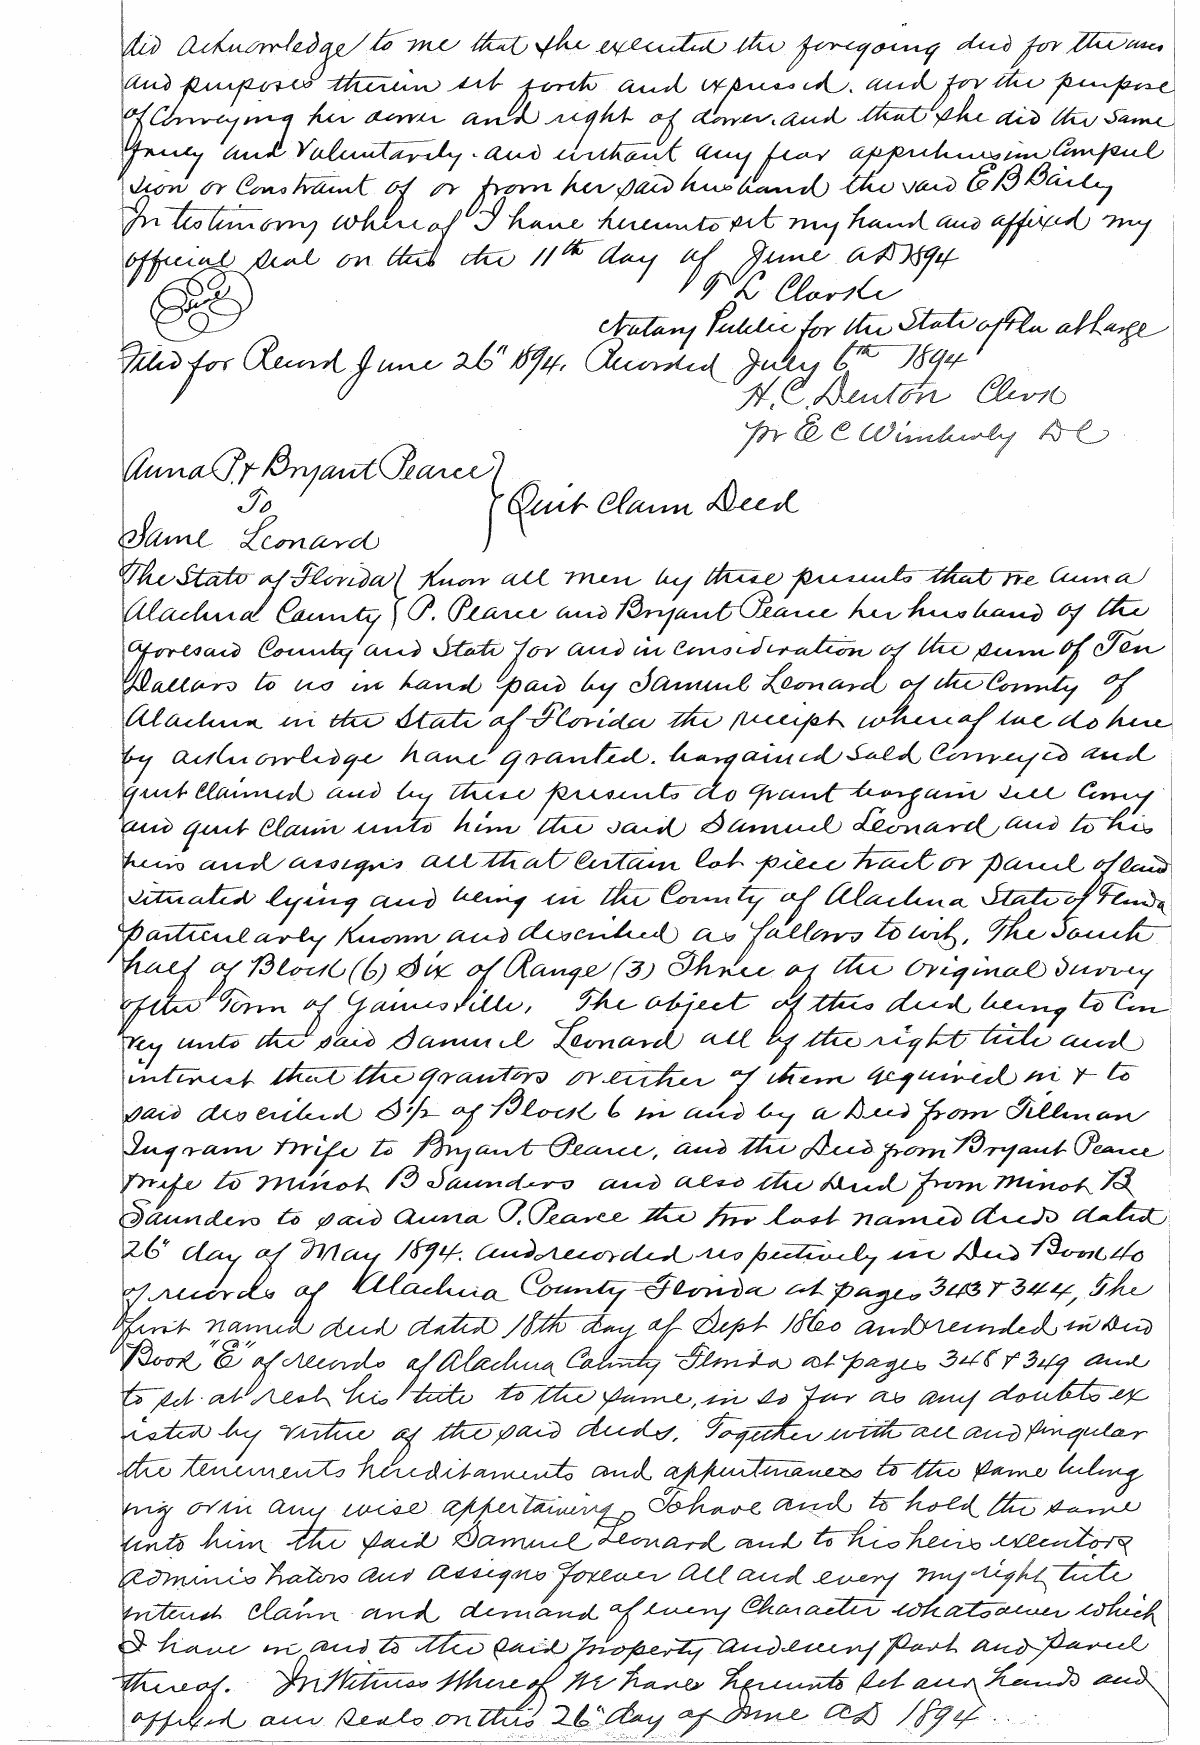 did acknowledge to me that she executed the foregoing deed for the uses
and purposes therein set forth and expressed. and for the purpose
of Conveying her dower and right of dower. and that she did the same
freely and Voluntarily. and without any fear apprehension Compul
sion or Constraint of or from her said husband the said E B Baily
In testimony whereof I have hereunto set my hand and affixed my
official seal on this the 11th day of June AD 1894
T L Clarke
Notary Public for the State of Fla at Large
Filed for Record June 26" 1894. Recorded July 6th 1894
H. C. Denton Clerk
pr E C Wimberly DC
Anna P. & Bryant Pearce
To
Quit Claim Deed
Saml Leonard
The State of Florida Know all men by these presents that we Anna
Alachua County P. Pearce and Bryant Pearce her husband of the
aforesaid County and State for and in consideration of the sum of Ten
Dollars to us in hand paid by Samuel Leonard of the County of
Alachua in the State of Florida the receipt whereof we do here
by acknowledge have granted. bargained Sold Conveyed and
quit Claimed and by these presents do grant bargain sell Convey
and quit Claim unto him the said Samuel Leonard and to his
heirs and assigns all that Certain lot piece tract or parcel of land
situated lying and being in the County of Alachua State of Florida
particularly Known and described as follows to wit, The South
half of Block (6) Six of Range (3) Three of the Original Survey
of the Town of Gainesville. The object of this deed being to Con
vey unto the said Samuel Leonard all of the right title and
interest that the grantors or either of them acquired in & to
said described S 1/2 of Block 6 in and by a Deed from Tillman
Ingram & wife to Bryant Pearce, and the Deed from Bryant Pearce
& wife to Minot B Saunders and also the Deed from Minot B
Saunders to said Anna P. Pearce the two last named deeds dated
26" day of May 1894. and recorded respectively in Deed Book 40
of records of Alachua County Florida at pages 343 & 344, The
first named deed dated 18th day of Sept 1860 and recorded in Deed
Book "E" of records of Alachua County Florida at pages 348 & 349 and
to set at rest his title to the same, in so far as any doubts ex
isted by virtue of the said deeds. Together with all and singular
the tenements hereditaments and appurtenances to the same belong
ing or in any wise appertaining To have and to hold the same
unto him the said Samuel Leonard and to his heirs executors
administrators and assigns forever All and every my right title
interest claim and demand of every Character whatsoever which
I have in and to the said property and every part and parcel
thereof. In Witness Whereof We have hereunto set our hands and
affixed our seals on this 26" day of June AD 1894